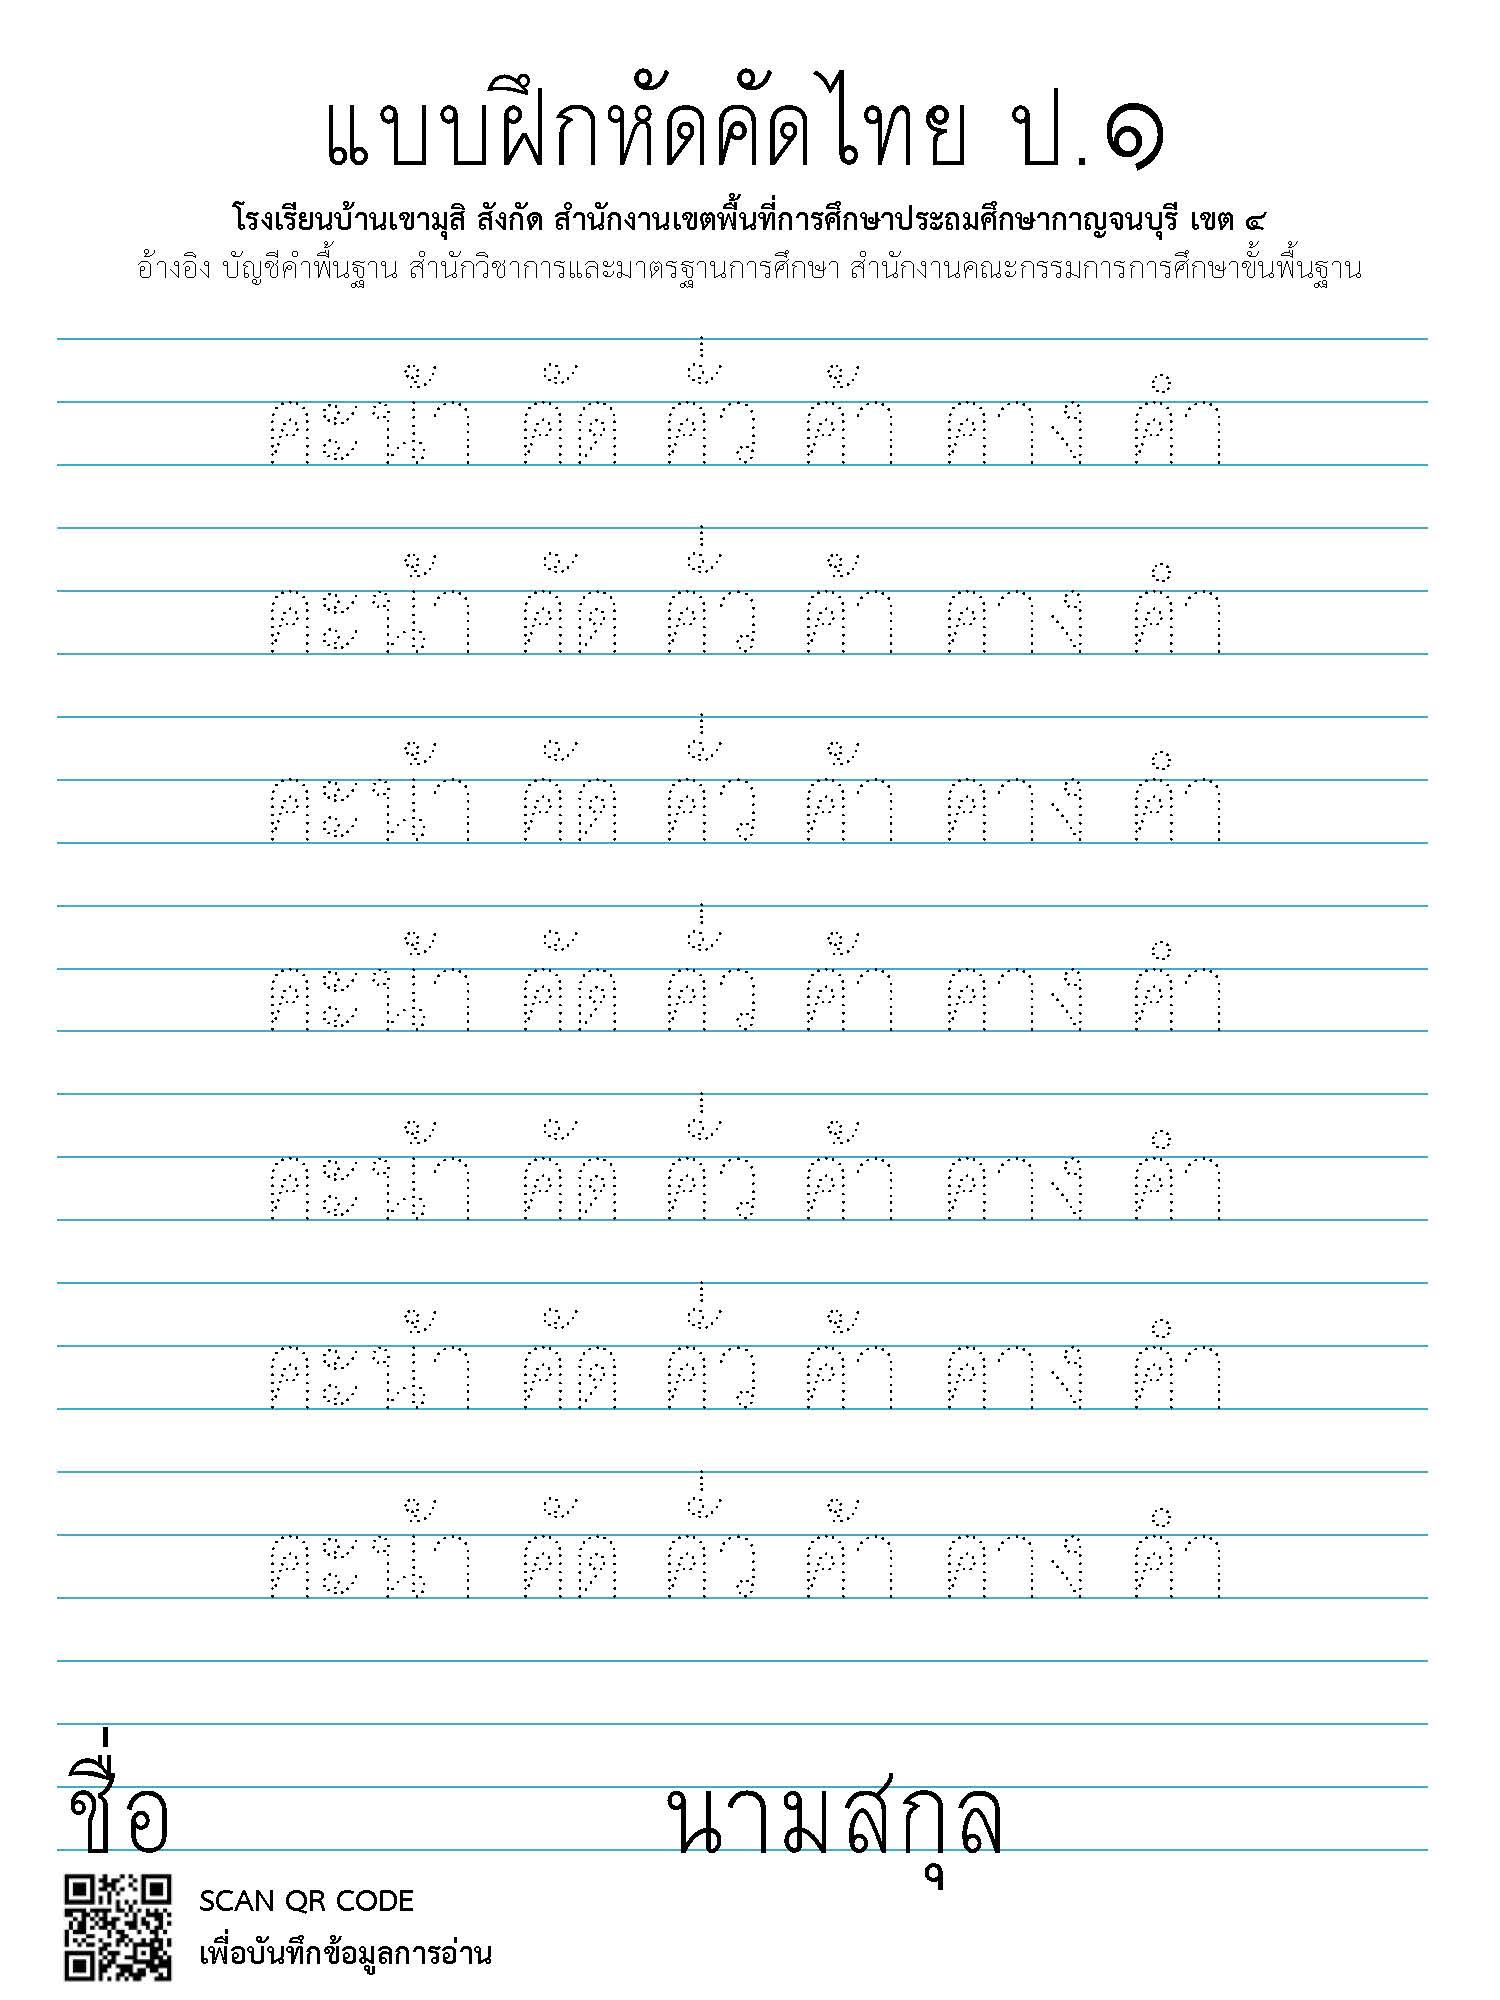 แบบฝึกหัดคัดไทย ป.๑
โรงเรียนบ้านเขามุสิ สังกัด สำนักงานเขตพื้นที่การศึกษาประถมศึกษากาญจนบุรี เขต ๔
อ้างอิง บัญชีคำพื้นฐาน สำนักวิชาการและมาตรฐานการศึกษา สำนักงานคณะกรรมการการศึกษาขั้นพื้นฐาน
คะน้า คัด คั่ว ค้า คาง คำ
คะน้า คัด คั่ว ค้า คาง คำ
คะน้า คัด คั่ว ค้า คาง คำ
คะน้า คัด คั่ว ค้า คาง คำ
คะน้า คัด คั่ว ค้า คาง คำ
คะน้า คัด คั่ว ค้า คาง คำ
คะน้า คัด คั่ว ค้า คาง คำ
ชื่อ นามสกุล
SCAN QR CODE
เพื่อบันทึกข้อมูลการอ่าน